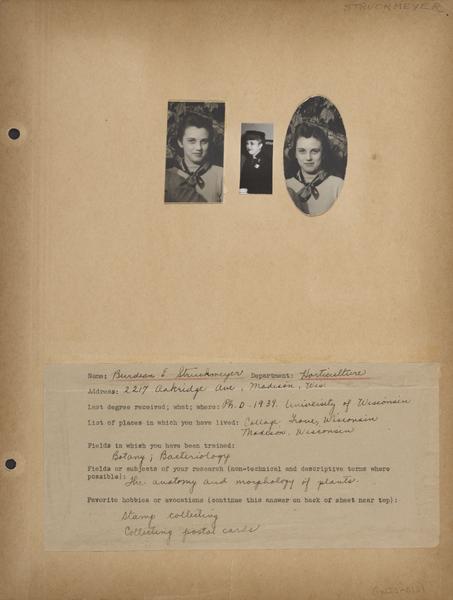 STRUCKMEYER
Name: Burdean E. Struckmeyer Department: Horticulture
Address: 2217 Oakridge Ave, Madison, Wis.
Last degree received; what; where: Ph.D - 1939. University of Wisconsin
List of places in which you have lived: Cottage Grove, Wisconsin
Madison, Wisconsin
Fields in which you have been trained:
Botany; Bacteriology
Fields or subjects of your research (non-technical and descriptive terms where
possible): The anatomy and morphology of plants.
Favorite hobbies or avocations (continue this answer on back of sheet near top):
Stamp collecting
Collecting postal cards